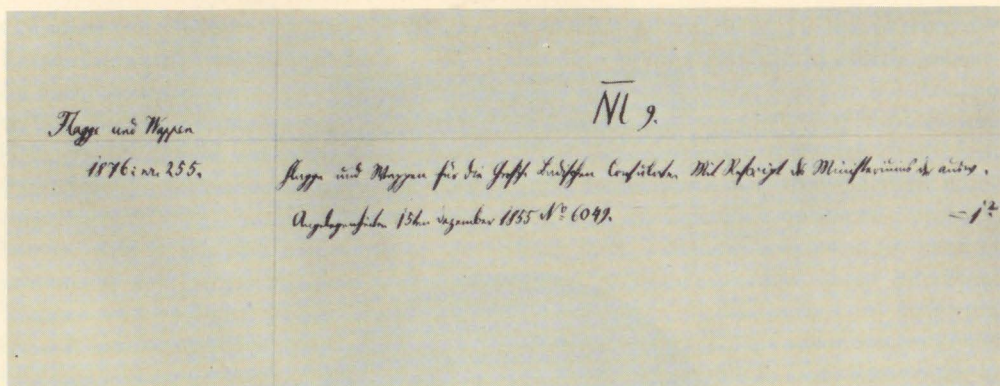 Nl 9.
Flagge und Wappen
1876: nr. 255.
Flagge und Wappen für die Großh. Badischen Consulate. Mit Rescript des Ministeriums der ausw.
Angelegenheiten 15ten Dezember 1855 No. 6049.